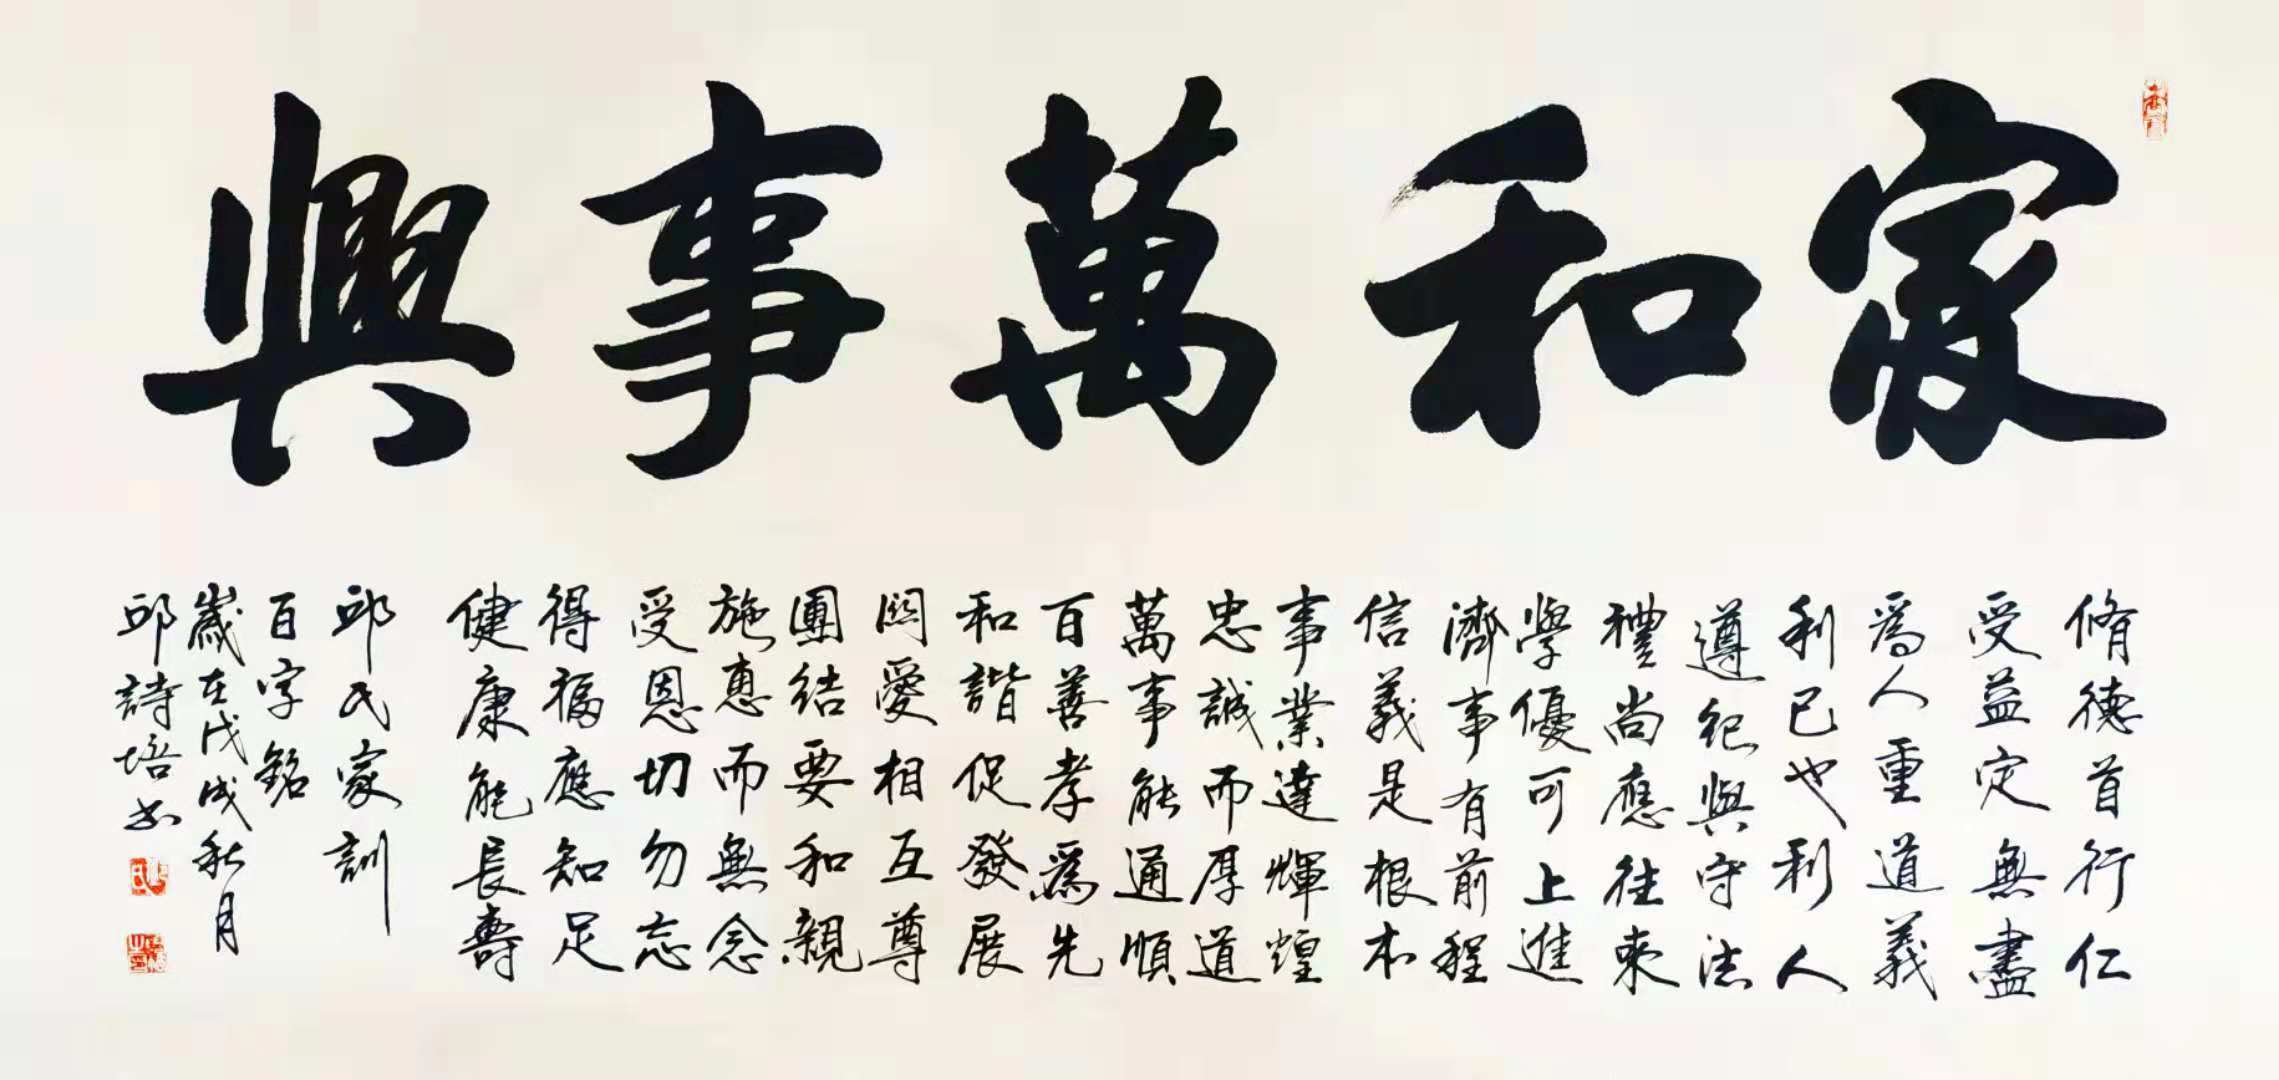 家和萬事興
脩德首行仁
受益定無盡
爲人重道義
利已也利人
遵紀與守法
禮尚應往來
學優可上進
濟事有前程
信義是根本
事業達輝煌
忠誠而厚道
萬事能通順
百善孝爲先
和諧促發展
関愛相互尊
團結要和親
施惠而無念
受恩切勿忘
得福應知足
健康能長壽
邱氏家訓
百字銘
歲在戊戌秋月
邱詩培书